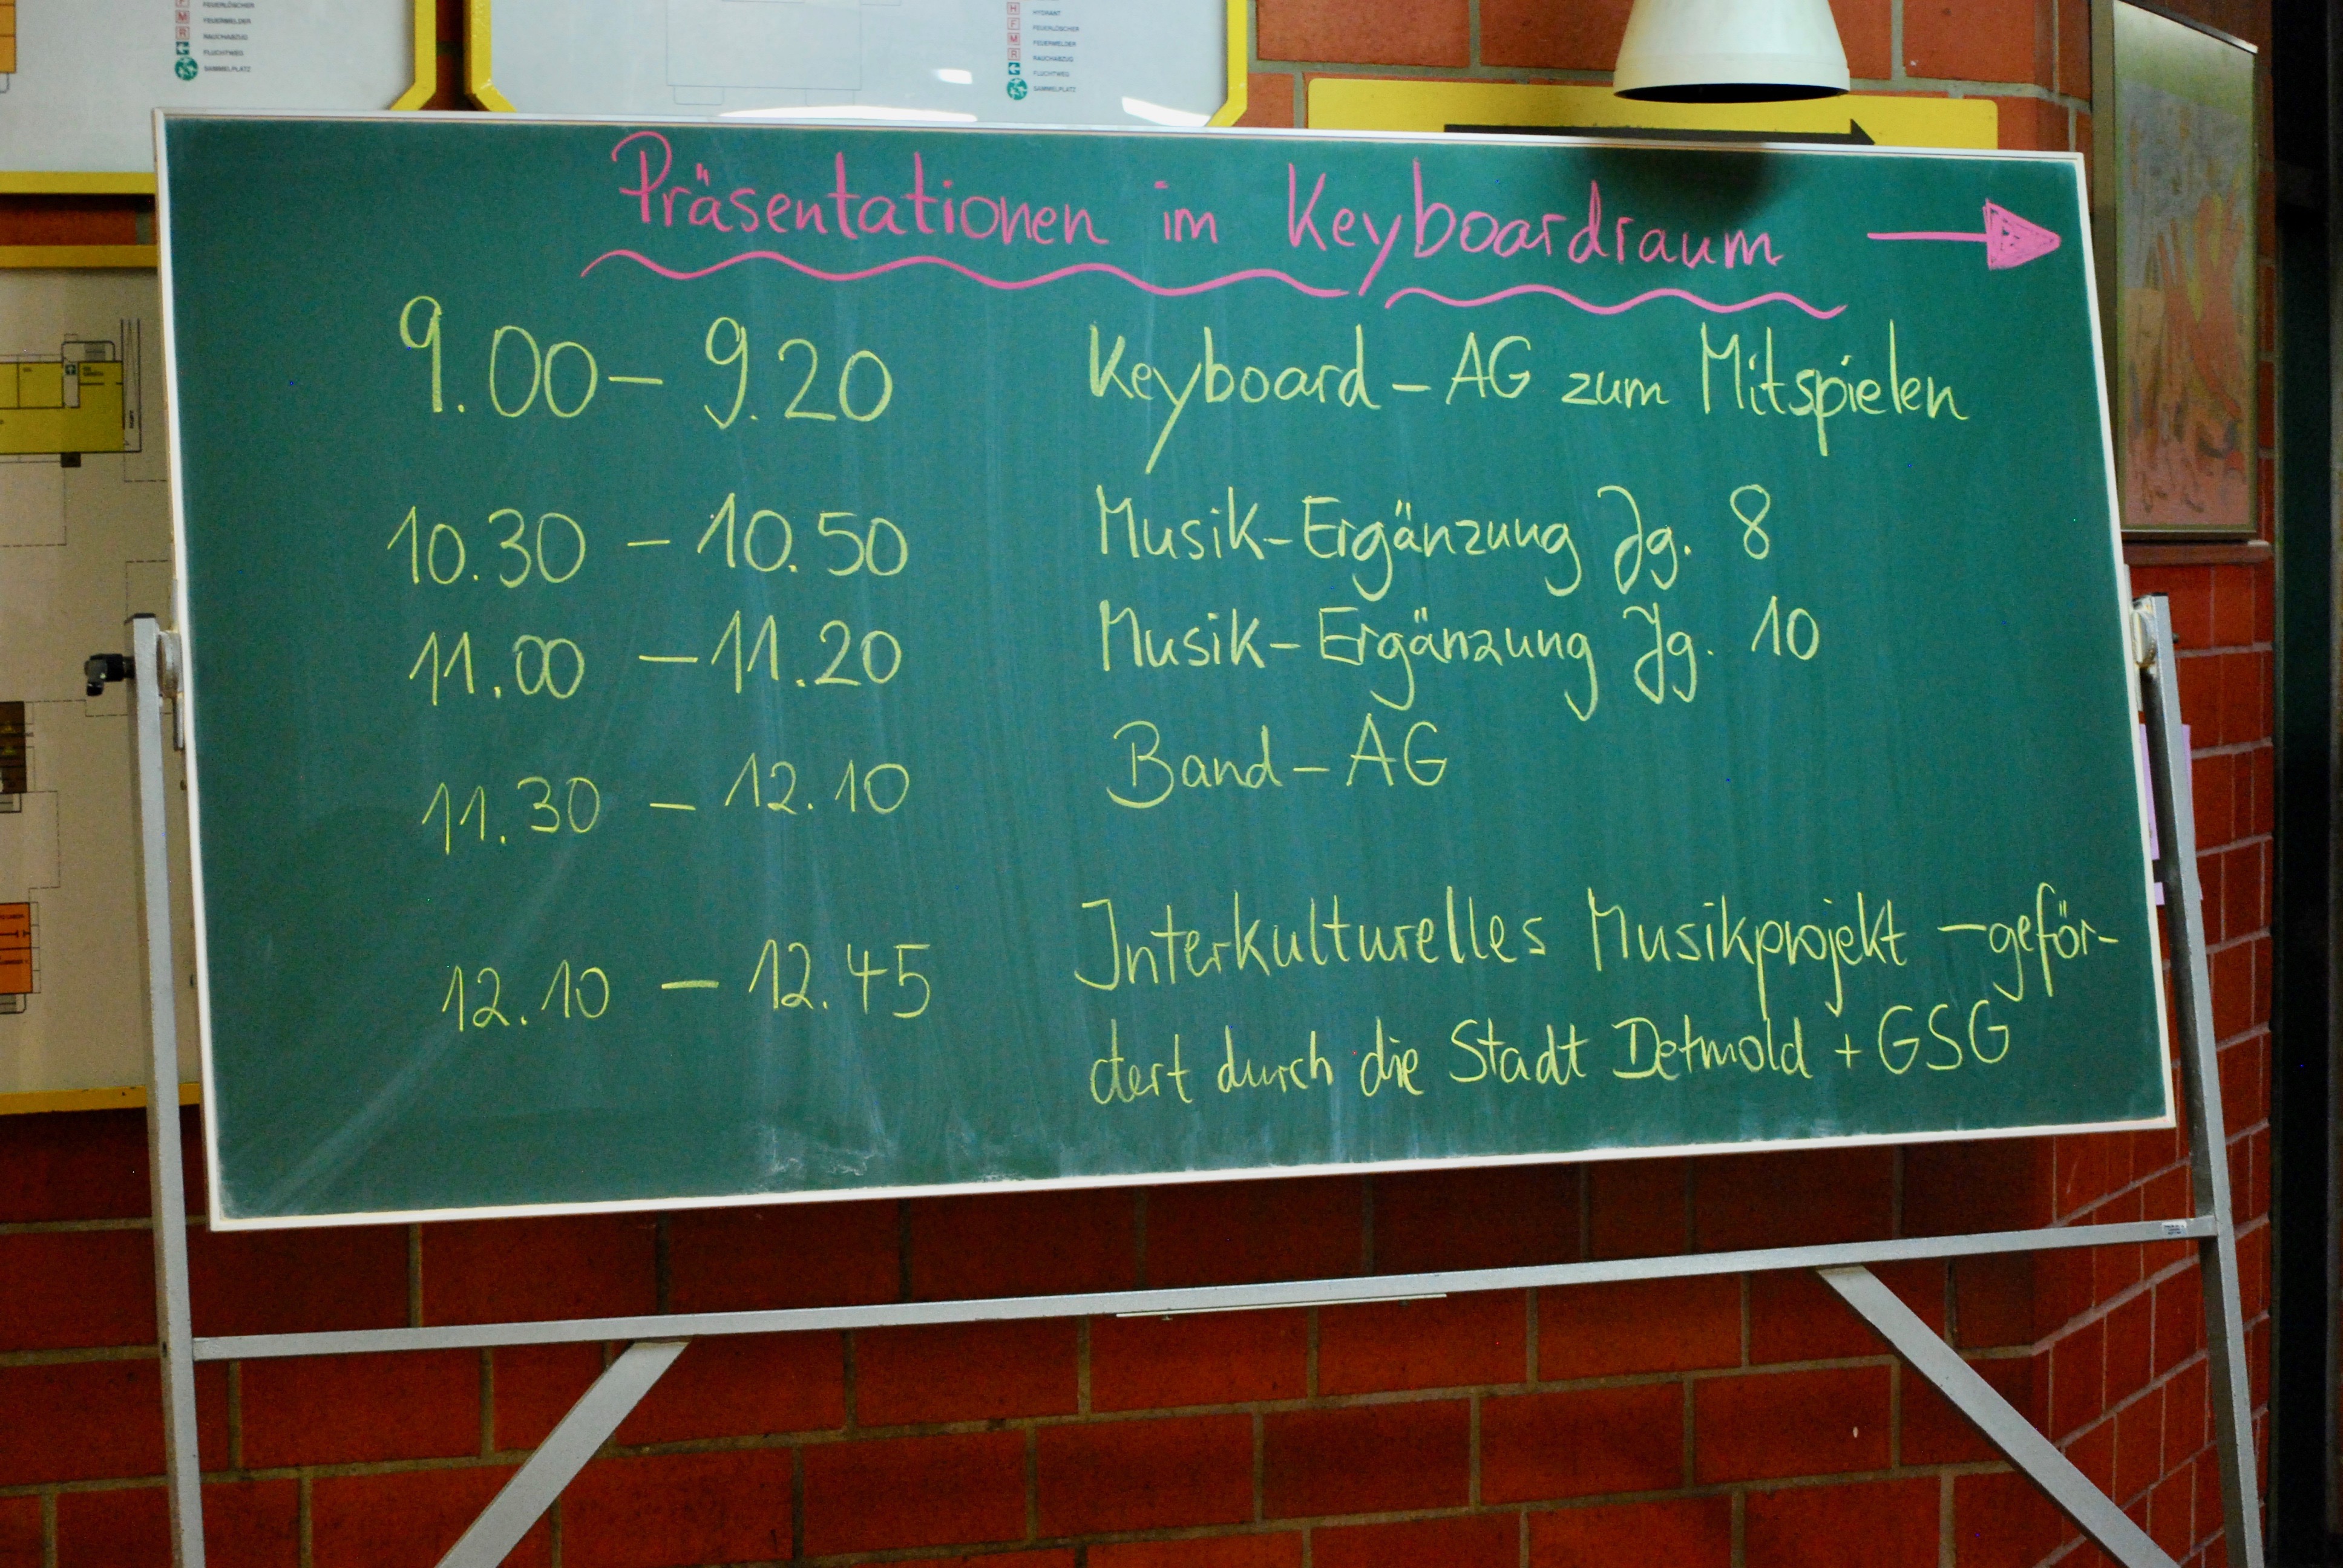 FEUERLÖSCHER
FEUERMELDER
RAUCHABZUG
FLUCHTWEG
SAMMELPLATZ
H HYDRANT
F FEUERLÖSCHER
M FEUERMELDER
R RAUCHABZUG
FLUCHTWEG
SAMMELPLATZ
Präsentationen im Keyboardraum
9.00 – 9.20 Keyboard – AG zum Mitspielen
10.30 – 10.50 Musik-Ergänzung Jg. 8
11.00 – 11.20 Musik-Ergänzung Jg. 10
11.30 – 12.10 Band – AG
12.10 – 12.45 Interkulturelles Musikprojekt – geför-
dert durch die Stadt Detmold + GSG